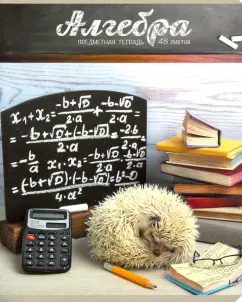 Алгебра
ПРЕДМЕТНАЯ ТЕТРАДЬ 48 ЛИСТОВ
x₁+x₂= -b+√D / 2·a + -b-√D / 2·a =
= -b+√D+(-b-√D) / 2·a = -2b / 2·a =
= -b / a x₁·x₂= -b+√D / 2·a · -b-√D / 2·a =
= (-b+√D)·(-b-√D) / 4·a² = b²-D